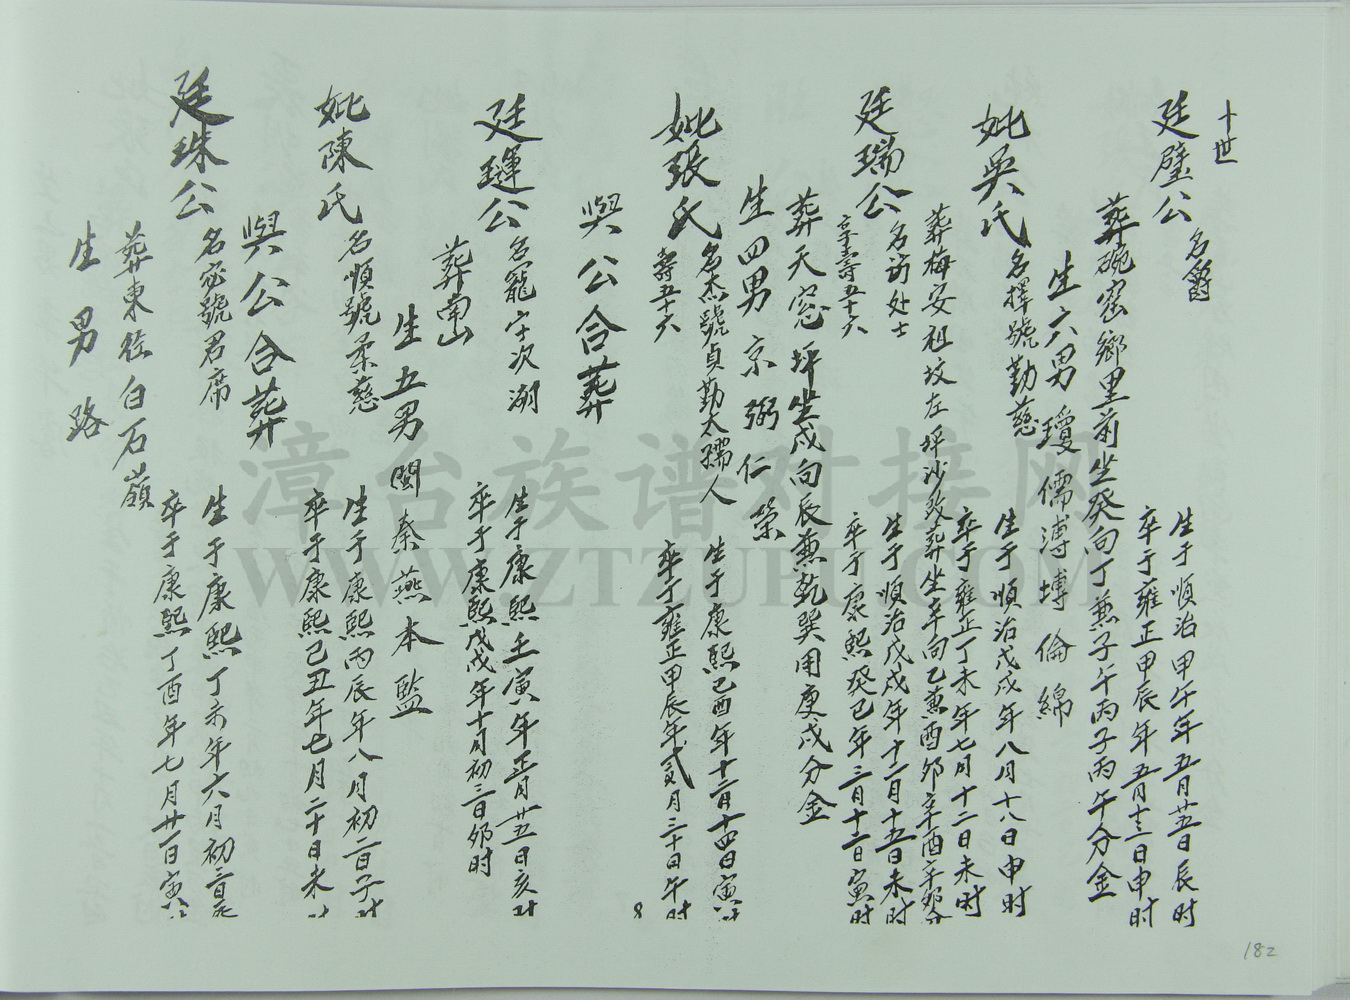 十世
廷璧公 名爵 生于順治甲午年五月廿五日辰时
卒于雍正甲辰年五月十三日申时
葬碗窑鄉里前坐癸向丁兼子午丙子丙午分金
生六男 瓊 儒 溥 塼 倫 綿
妣吳氏 名擇號勤慈 生于順治戊戌年八月十八日申时
卒于雍正丁未年七月十二日未时
葬梅安祖坟左坪沙改葬坐辛向乙兼酉卯辛酉辛卯分
廷瑞公 名訪处士 生于順治戊戌年十二月十五日未时
享壽五十六 卒于康熙癸巳年三月十二日寅时
葬天窓坪坐戌向辰兼乾巽用庚戌分金
生四男 京 弼 仁 榮
妣張氏 名杰號貞勤太孺人 生于康熙己酉年十二月十四日寅时
壽五十六 卒于雍正甲辰年貳月三十日午时
與公合葬
廷璉公 名寵字次湖 生于康熙壬寅年正月廿五日亥时
卒于康熙戊戌年十月初三日卯时
葬南山
生五男 閩 秦 燕 本 監
妣陳氏 名順號柔慈 生于康熙丙辰年八月初二日子时
卒于康熙己丑年七月二十日未时
與公合葬
廷珠公 名宓號君席 生于康熙丁未年六月初三日
卒于康熙丁酉年七月廿一日寅时
葬東徑白石嶺
生男 路
182
漳台族谱对接网
WWW.ZTZUPU.COM